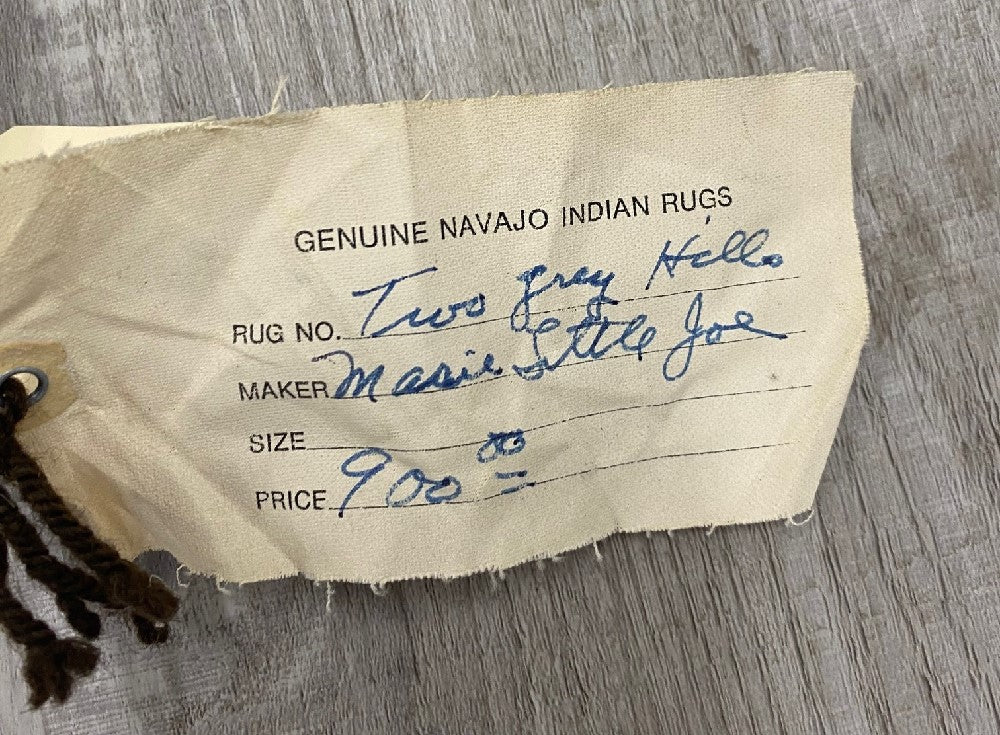 GENUINE NAVAJO INDIAN RUGS
RUG NO. Two grey Hills
MAKER Marie Little Joe
SIZE
PRICE 900 00